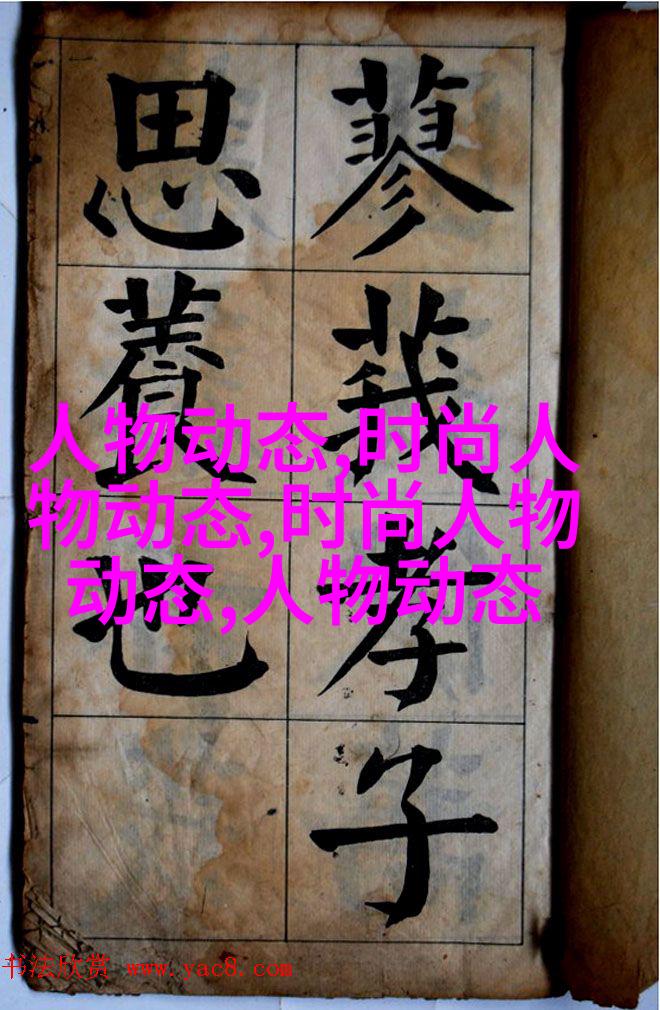 蓼莪孝子
思養也
人物动态,时尚人
物动态,时尚人物
动态,人物动态
书法欣赏 www.yac8.com